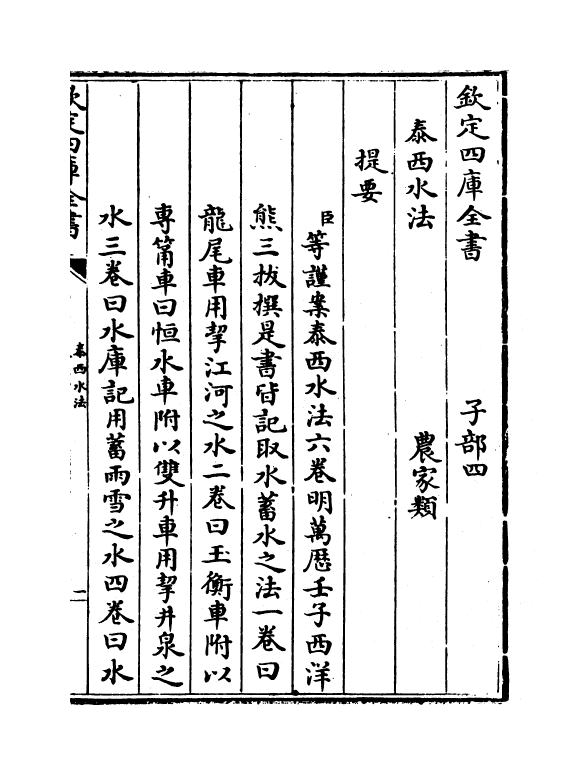 欽定四庫全書　子部四
泰西水法　農家類
提要
臣等謹案泰西水法六卷明萬厯壬子西洋
熊三拔撰是書皆記取水蓄水之法一卷曰
龍尾車用挈江河之水二卷曰玉衡車附以
専筩車曰恒水車附以雙升車用挈井泉之
水三卷曰水庫記用蓄雨雪之水四卷曰水
欽定四庫全書
泰西水法
二